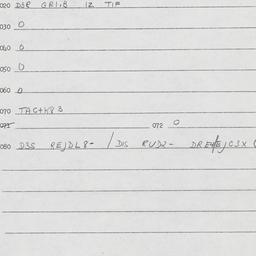 020 DSR GRI,B 12 TIF
030 0
040 0
050 0
060 0
070 TAC+KB3
071 072 0
080 D3S REJDL8- / DIS RUD2-